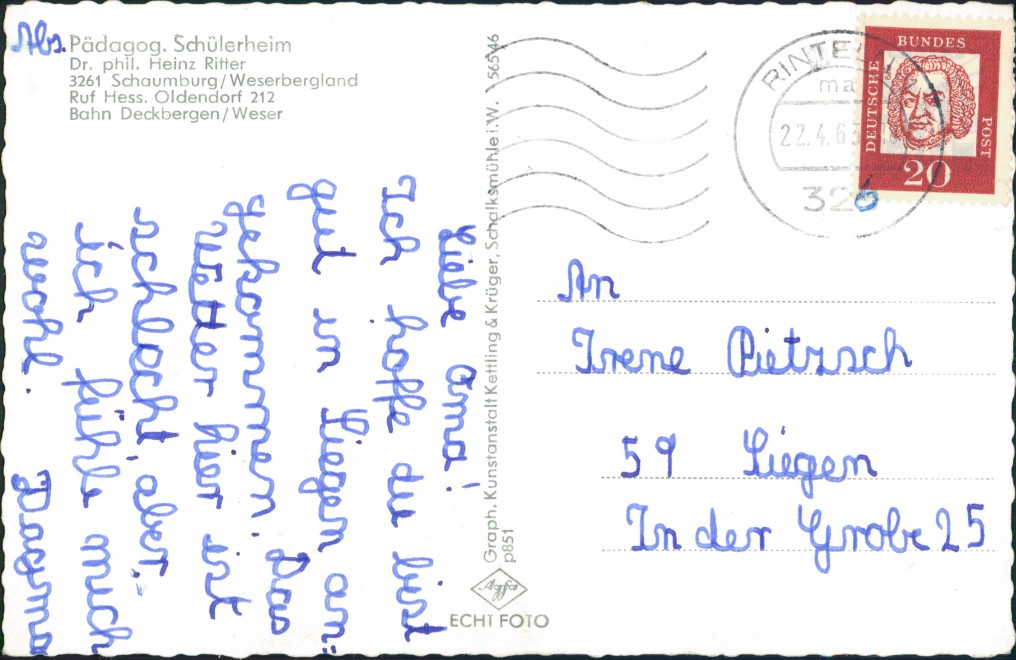 Abs. Pädagog. Schülerheim
Dr. phil. Heinz Ritter
3261 Schaumburg/Weserbergland
Ruf Hess. Oldendorf 212
Bahn Deckbergen/Weser
Liebe Oma!
Ich hoffe du bist
gut in Siegen an=
gekommen. Das
Wetter hier ist
schlecht, aber=
ich fühle mich
wohl. Dagma
Graph. Kunstanstalt Kettling & Krüger, Schalksmühle i.W. 565/46
p851
Agfa
ECHT FOTO
RINTELN
22.4.63
326
DEUTSCHE
BUNDES
POST
20
An
Irene Pietzsch
59 Siegen
In der Grobe 25